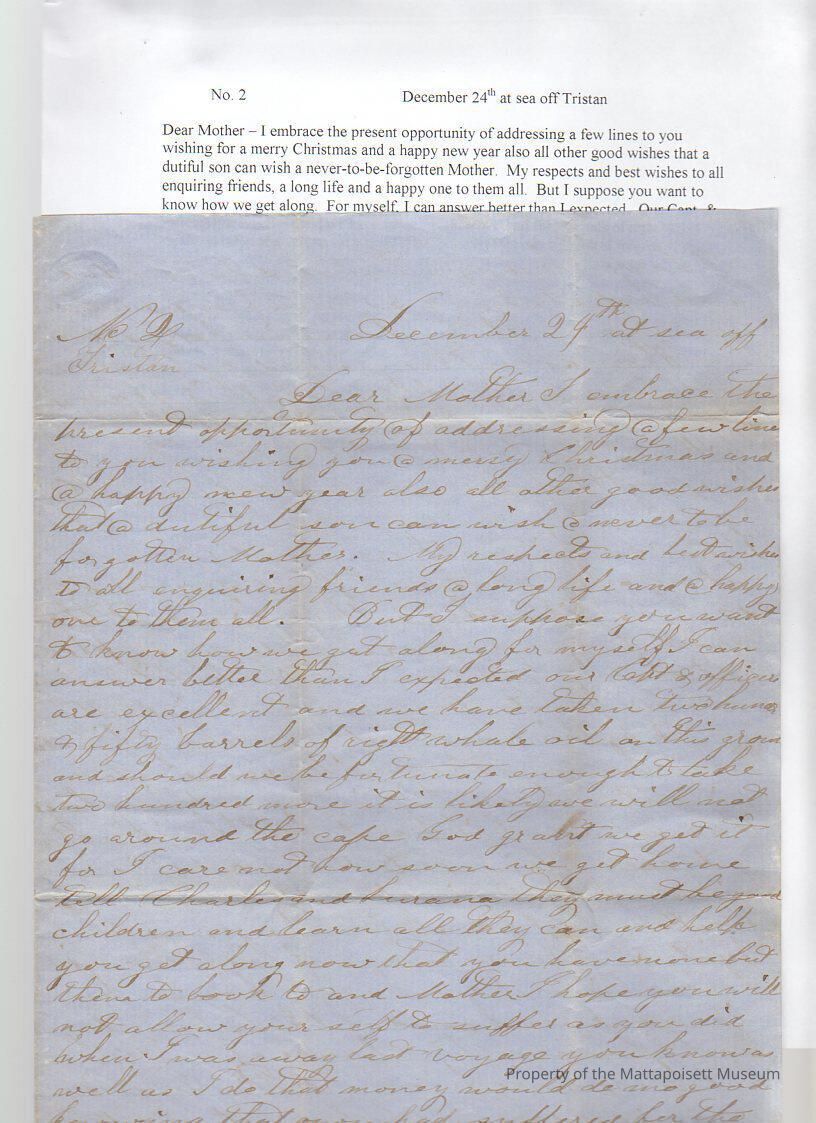 No. 2 December 24th at sea off Tristan
Dear Mother – I embrace the present opportunity of addressing a few lines to you
wishing for a merry Christmas and a happy new year also all other good wishes that a
dutiful son can wish a never-to-be-forgotten Mother. My respects and best wishes to all
enquiring friends, a long life and a happy one to them all. But I suppose you want to
know how we get along. For myself, I can answer better than I expected. Our Capt. &
No 2 December 24th at sea off
Tristan
Dear Mother I embrace the
present opportunity of addressing a few lines
to you wishing you a merry Christmas and
a happy new year also all other good wishes
that a dutiful son can wish a never to be
forgotten Mother. My respects and best wishes
to all enquiring friends a long life and a happy
one to them all. But I suppose you want
to know how we get along for myself I can
answer better than I expected our Capt & officers
are excellent and we have taken two hund
& fifty barrels of right whale oil on this groun
and should we be fortunate enough to take
two hundred more it is likely we will not
go around the cape God grant we get it
for I care not how soon we get home
tell Charles and Lurana they must be good
children and learn all they can and help
you get along now that you have none but
them to look to and Mother I hope you will
not allow your self to suffer as you did
when I was away last voyage you know as
well as I do that money would do me no good
knowing that you had suffered for the
Property of the Mattapoisett Museum